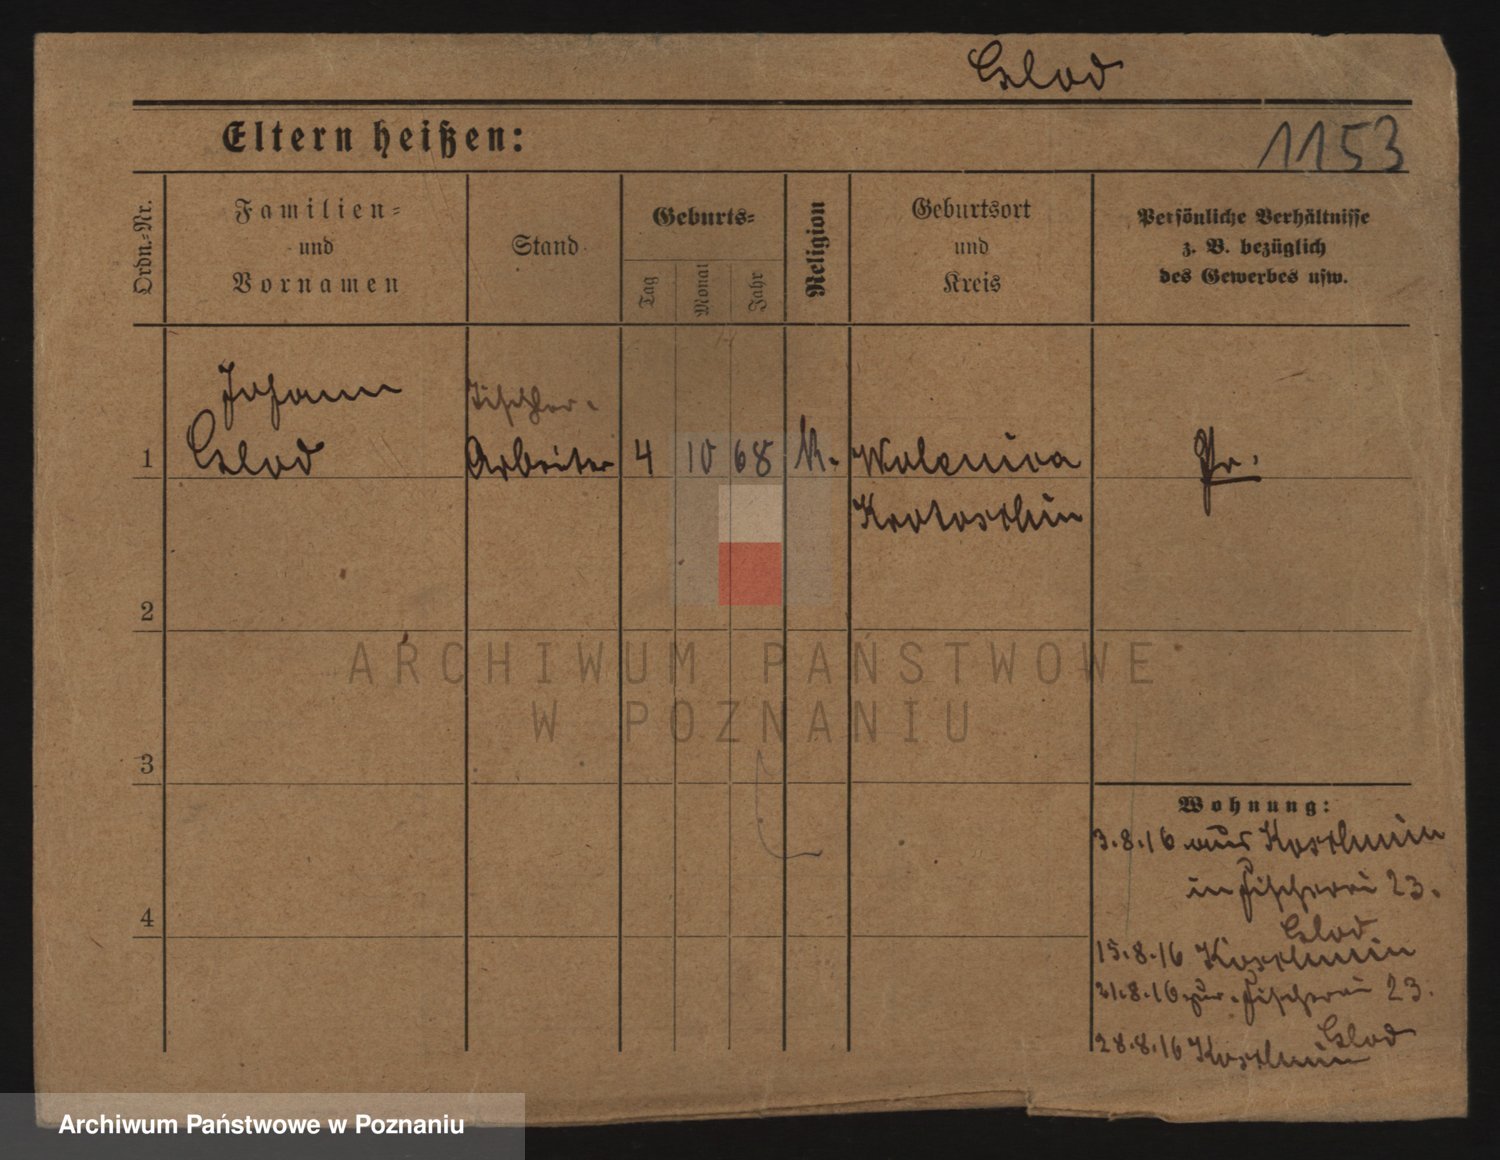 Glod
Eltern heißen:
1153
Ordn.-Nr.
Familien-
und
Vornamen
Stand
Geburts-
Tag
Monat
Jahr
Religion
Geburtsort
und
Kreis
Persönliche Verhältnisse
z. B. bezüglich
des Gewerbes usw.
Johann
Tischler-
1 Glod Arbeiter 4 10 68 K. Pr.
Krotoschin
2
ARCHIWUM PAŃSTWOWE
W POZNANIU
3
Wohnung:
3.8.16 aus Koschmin
in Fischerei 23.
4
Glod
15.8.16 Koschmin
21.8.16 zur. Fischerei 23.
Glod
28.8.16 Koschmin
Archiwum Państwowe w Poznaniu